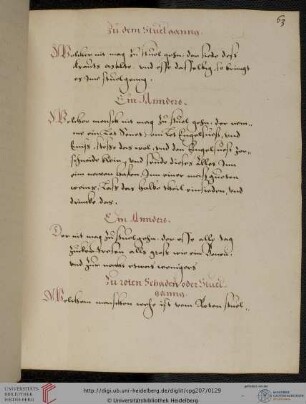 63
Zu dem Stuelganng.
Welcher nit mag zu stuol gehn, der siede deß
krauts
vnd esse das selbig, so bringt
es Ime stuelgeng.
Ein Annders.
Welcher mensch nit mag zu stuol gehn, der nem„
me ein Lot Senet, ein Lot Engelsüeß, vnd
Eniß, stoße das vnd den Engelsüeß zer„
schneide klein, vnd siede dieses Alles Inn
ein newen hafen, Inn einer maß gueten
weins, Laß das halbe theil einsieden, vnd
drincke das.
Ein Annders.
Der nit mag zu stuol gehn, der esse alle tag
zucker
allen groß wie ein
vnd zur nacht etwas weniger.
Zu roten Schaden oder Stuel„
ganng.
Welchem menschen wehe ist vom Roten stuol„
UNIVERSITÄTS-
BIBLIOTHEK
HEIDELBERG
http://digi.ub.uni-heidelberg.de/diglit/cpg287/0129
© Universitätsbibliothek Heidelberg